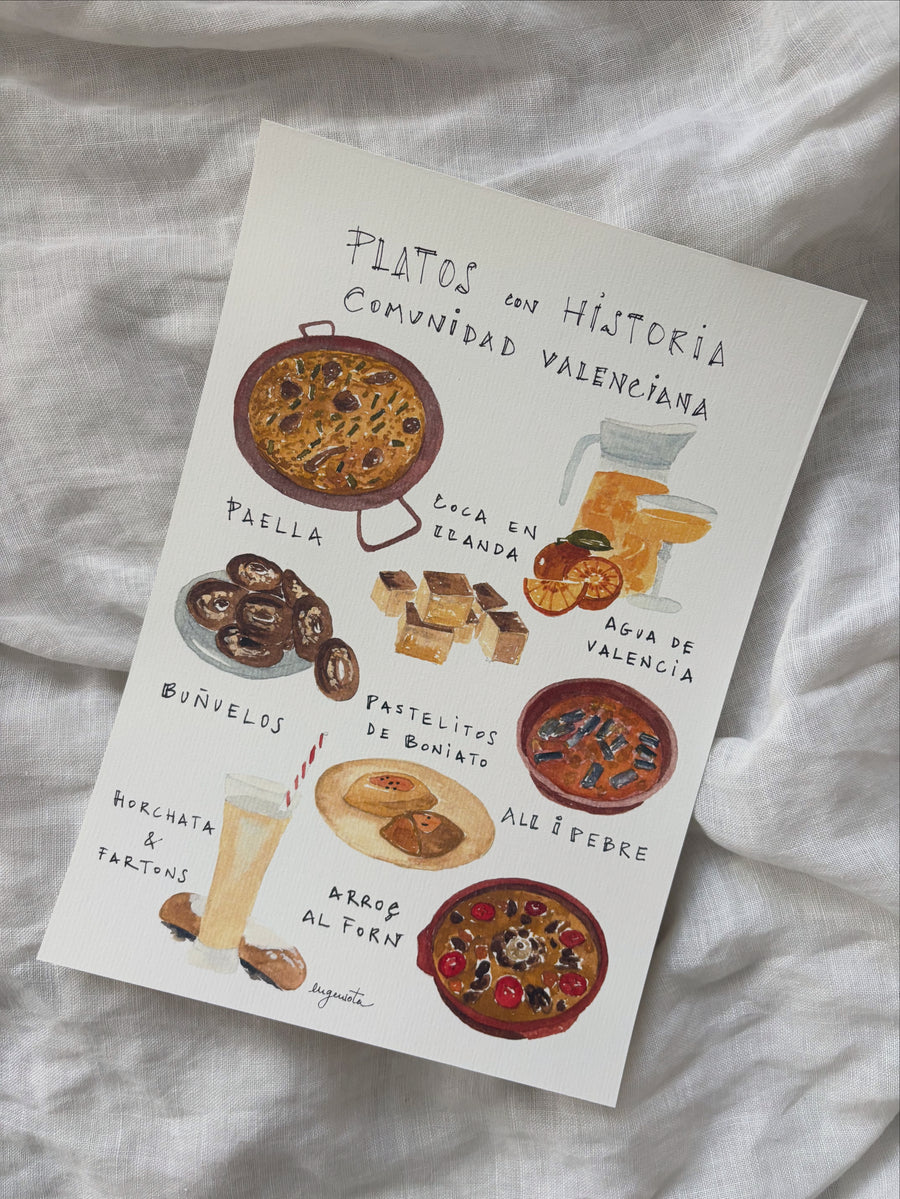 PLATOS CON HISTORIA
COMUNIDAD VALENCIANA
PAELLA
COCA EN
LLANDA
AGUA DE
VALENCIA
BUÑUELOS
PASTELITOS
DE BONIATO
ALL I PEBRE
HORCHATA
&
FARTONS
ARROÇ
AL FORN
eugeniota